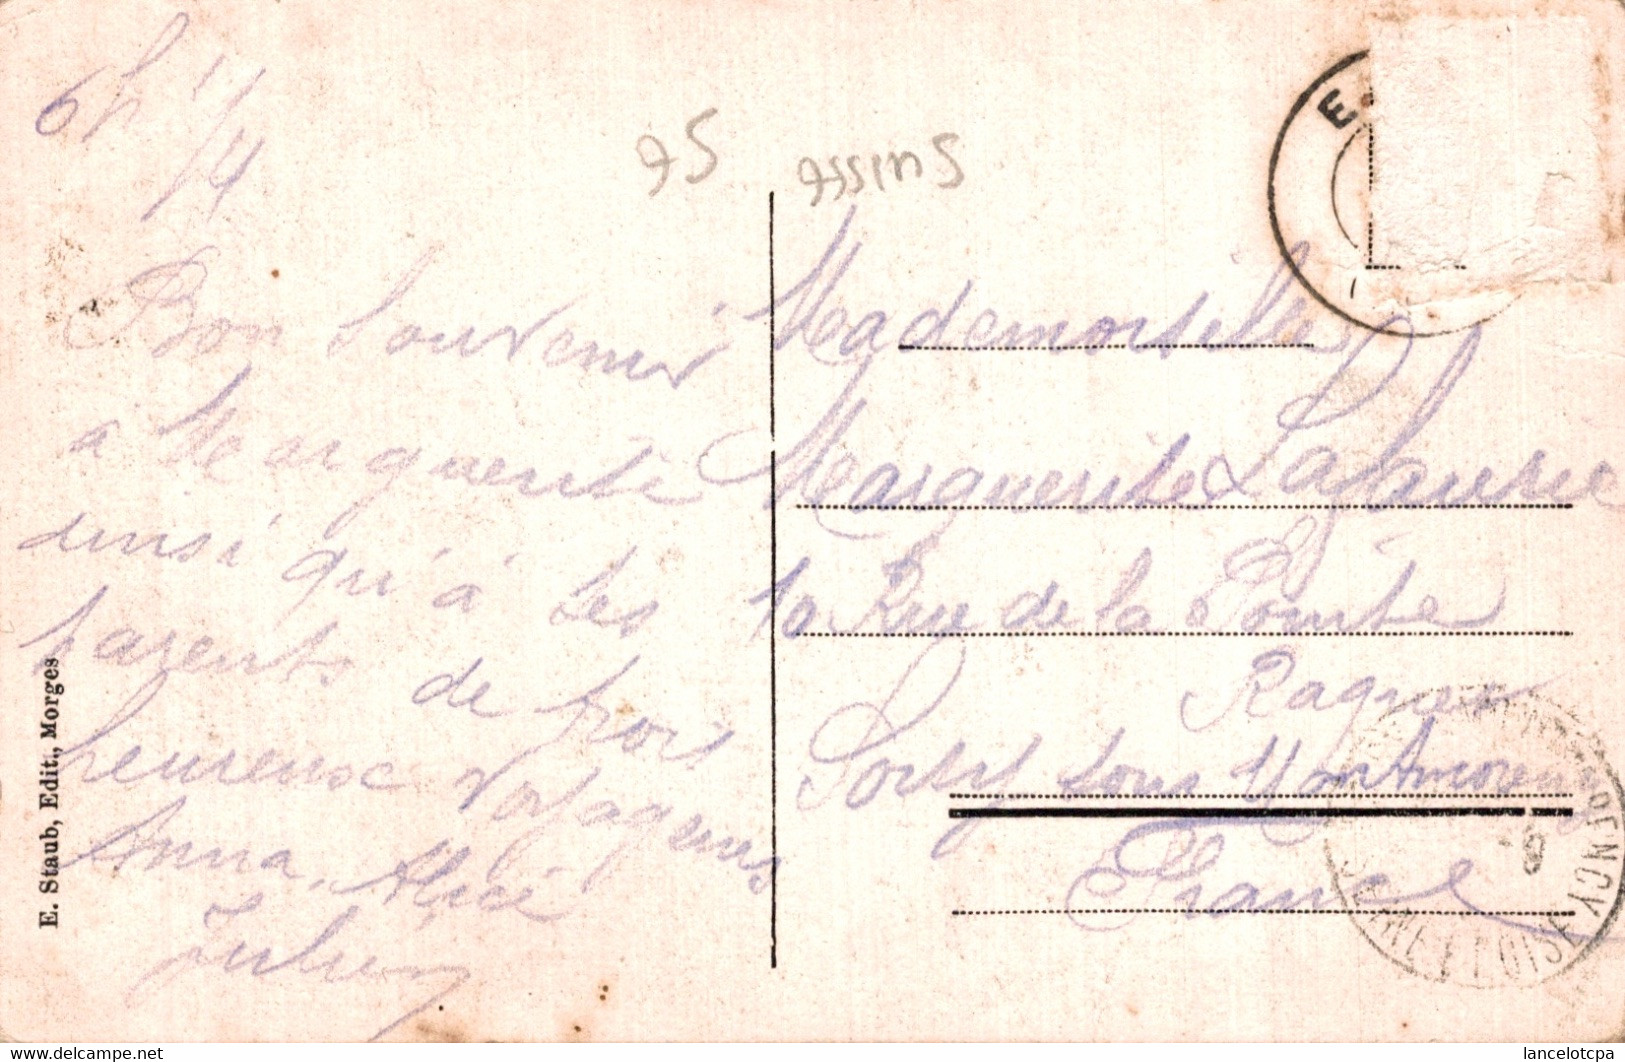 6h 1/4
75
Suisse
Bon Souvenir
a Marguerite
ainsi qu'à Ses
parents de trois
heureuse voyageurs
Anna, Alice
Julien
E. Staub, Edit., Morges
Mademoiselle
Marguerite Lafaurie
10 Rue de la Tombe
Ragner
Soisy sous Montmorency
France
SEINE ET OISE
lancelotcpa